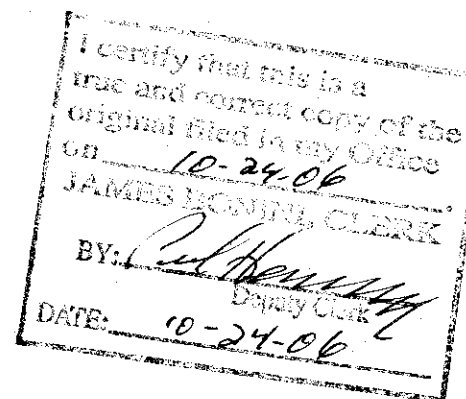 I certify that this is a
true and correct copy of the
original filed in my Office
on 10-24-06.
JAMES BONINI, CLERK
BY:
Deputy Clerk
DATE: 10-24-06